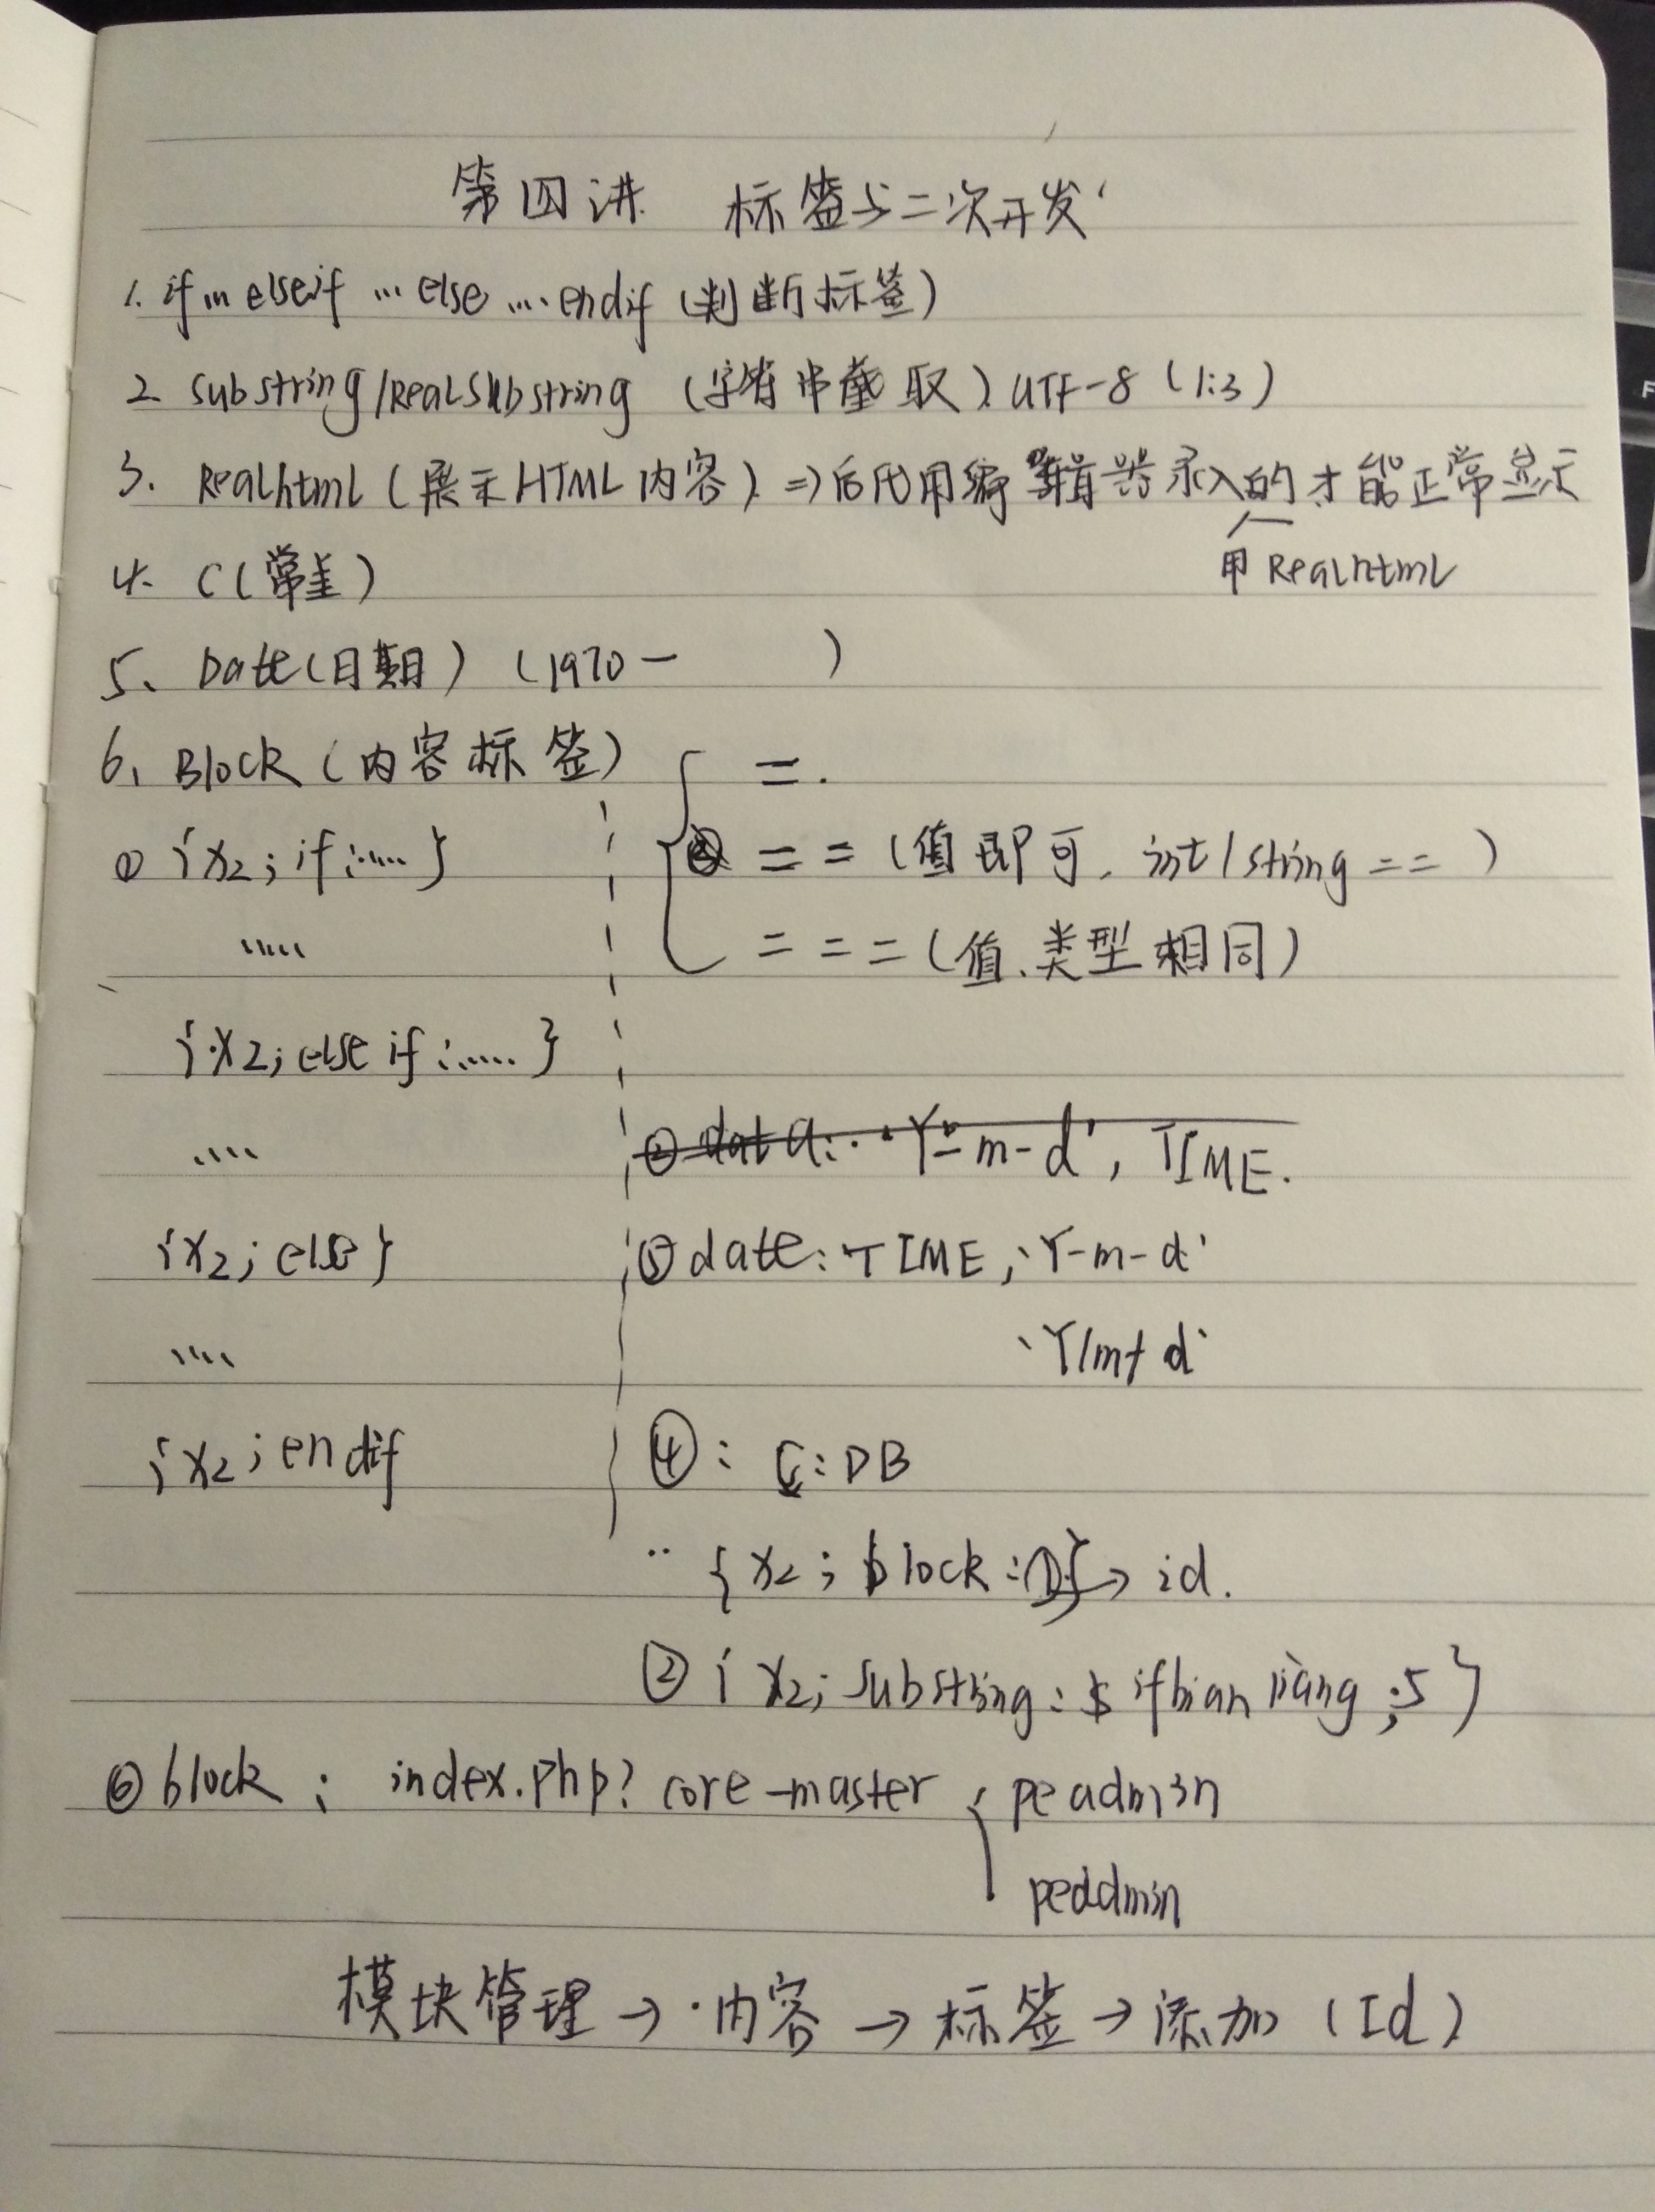 第四讲 标签与二次开发
1. if … elseif … else … endif (判断标签)
2 substring/Realsubstring (字符串截取) UTF-8 (1:3)
3. Realhtml (展示HTML内容) => 后代用编辑器录入的才能正常显示
用 Realhtml
4. C(常量)
5、Date(日期) (1970- )
6、Block (内容标签)
=.
① {x2;if:……}
== (值即可, int/string == )
……
=== (值、类型相同)
{x2;elseif:……}
……
② data: 'Y-m-d', TIME.
{x2;else}
⑤ date: TIME, 'Y-m-d'
……
'Y/m/d'
{x2;endif
④: C:DB
{x2; block:1} → id.
② {x2; substring: $ifbianliang;5}
⑥ block: index.php? core-master { peadmin
peadmin
模块管理 → 内容 → 标签 → 添加 (Id)